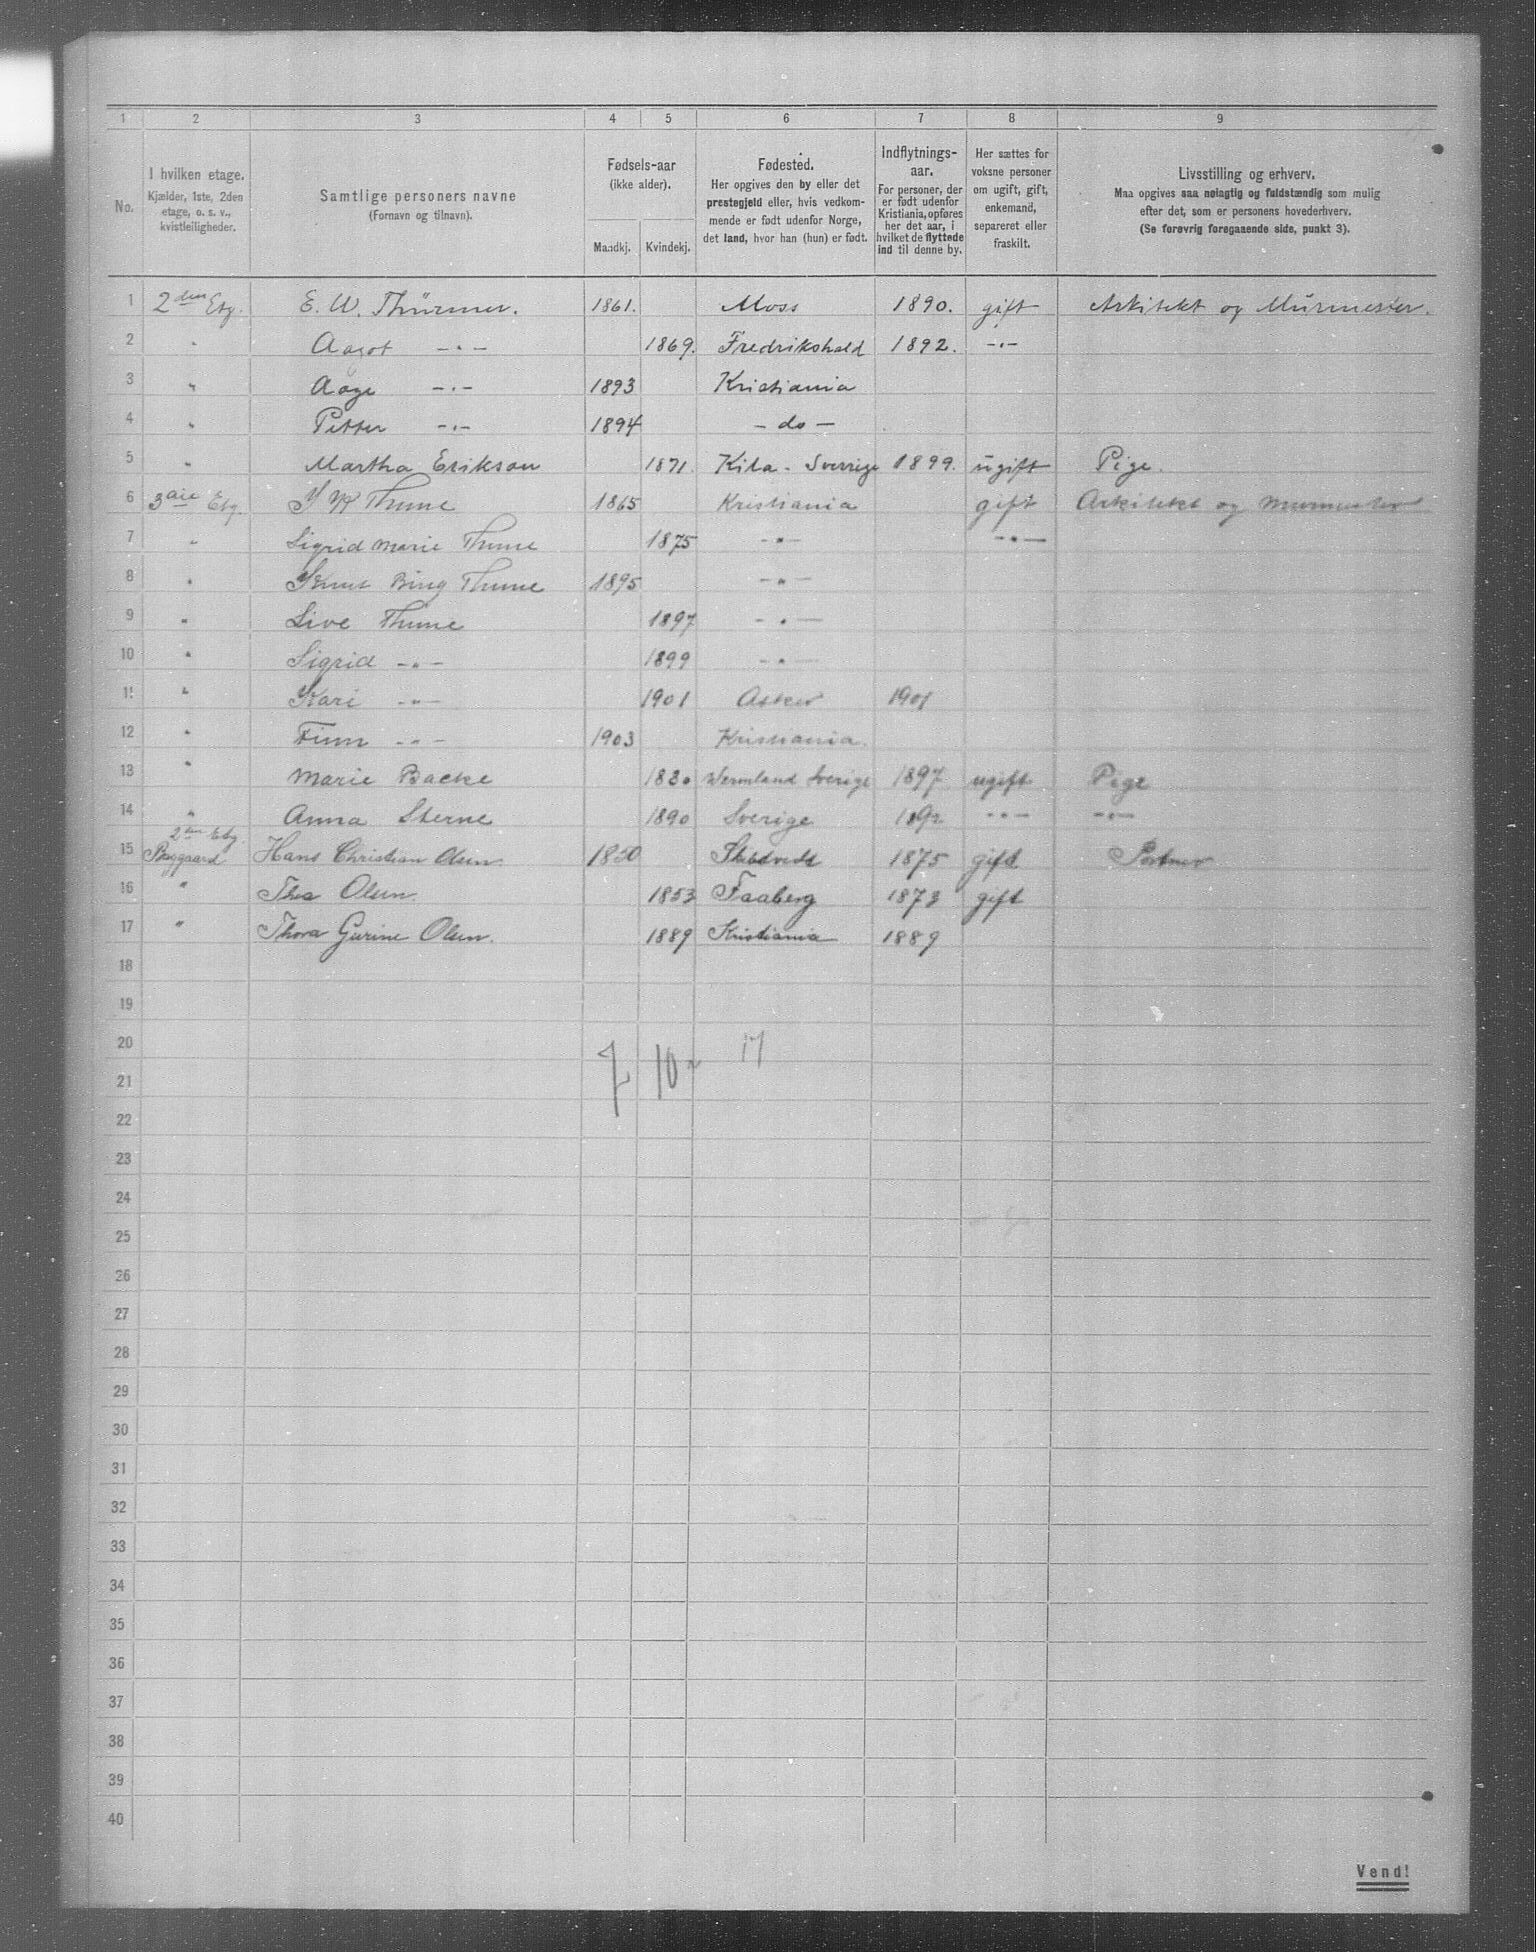 1 2 3 4 5 6 7 8 9
No.
I hvilken etage.
Kjælder, 1ste, 2den
etage, o. s. v.,
kvistleiligheder.
Samtlige personers navne
(Fornavn og tilnavn).
Fødsels-aar
(ikke alder).
Mandkj. Kvindekj.
Fødested.
Her opgives den by eller det
prestegjeld eller, hvis vedkom-
mende er født udenfor Norge,
det land, hvor han (hun) er født.
Indflytnings-
aar.
For personer, der
er født udenfor
Kristiania, opføres
her det aar, i
hvilket de flyttede
ind til denne by.
Her sættes for
voksne personer
om ugift, gift,
enkemand,
separeret eller
fraskilt.
Livsstilling og erhverv.
Maa opgives saa nøiagtig og fuldstændig som mulig
efter det, som er personens hovederhverv.
(Se forøvrig foregaaende side, punkt 3).
1 2den Etg. E. W. Thürmer. 1861. Moss 1890. gift Arkitekt og Murmester.
2 " Aagot -"- 1869. Fredrikshald 1892. -"-
3 " Aage -"- 1893 Kristiania
4 " Petter -"- 1894 - do -
5 " Martha Erikson 1871. Kila - Sverrige 1899. ugift Pige.
6 3die Etg. Thune 1865 Kristiania gift Arkitekt og Murmester
7 " Sigrid Marie Thune 1875 -"- -"-
8 " Knut Bing Thune 1895 -"-
9 " Live Thune 1897 -"-
10 " Sigrid -"- 1899 -"-
11 " Kari -"- 1901 Asker 1901
12 " Finn -"- 1903 Kristiania.
13 " Marie Backe 1830 Wermland Sverige 1897 ugift Pige
14 " Anna Sterne 1890 Sverige 1892 -"- -"-
2den Etg.
15 Baggaard Hans Christian Olsen 1850 1875 gift Portner
16 " Thea Olsen 1853 Faaberg 1873 gift
17 " Thora Gurine Olsen. 1889 Kristiania 1889
18
19
20
7 10 17
21
22
23
24
25
26
27
28
29
30
31
32
33
34
35
36
37
38
39
40
Vend!